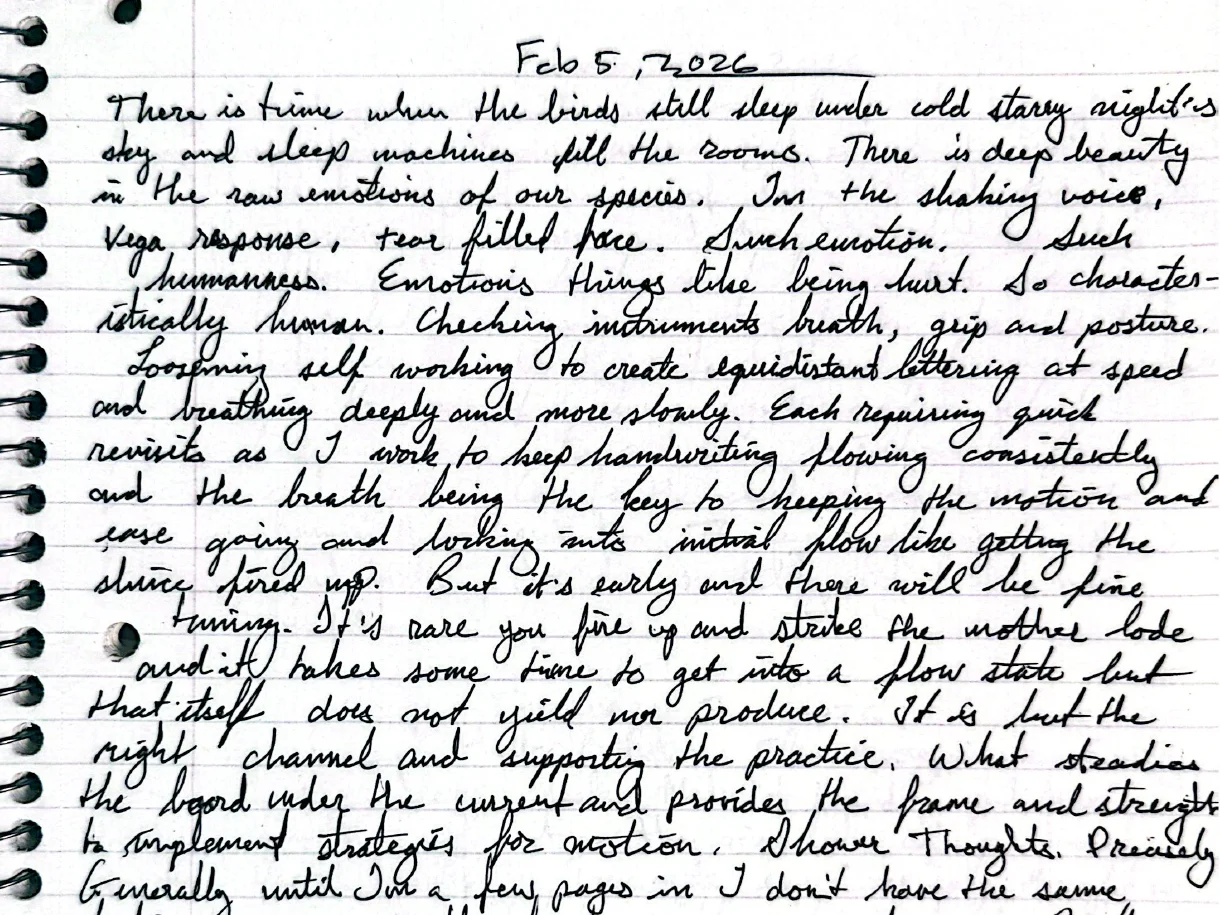 Feb 5, 2026
There is time when the birds still sleep under cold starry night's
sky and sleep machines fill the rooms. There is deep beauty
in the raw emotions of our species. In the shaking voice,
Vega response, tear filled face. Such emotion. Such
humanness. Emotions things like being hurt. So character-
istically human. Checking instruments breath, grip and posture.
Loosening self working to create equidistant lettering at speed
and breathing deeply and more slowly. Each requiring quick
revisits as I work to keep handwriting flowing consistently
and the breath being the key to keeping the motion and
ease going and locking into initial flow like getting the
sluice fired up. But it's early and there will be fine
tuning. It's rare you fire up and strike the mother lode
and it takes some time to get into a flow state but
that itself does not yield nor produce. It is but the
right channel and supporting the practice. What steadies
the board under the current and provides the frame and strength
to implement strategies for motion. Shower Thoughts. Precisely
Generally until I'm a few pages in I don't have the same